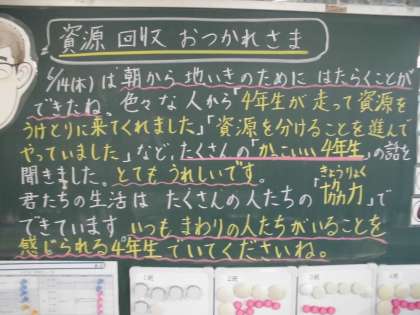 資源 回収 おつかれさま
6/14(木)は 朝から 地いきのために はたらくことが
できたね。色々な人から「4年生が走って資源を
うけとりに来てくれました」「資源を分けることを進んで
やっていました」など、たくさんの「かっこいい4年生」の話を
聞きました。とてもうれしいです。
きょうりょく
君たちの生活は たくさんの人たちの「協力」で
できています。いつも、まわりの人たちがいることを
感じられる4年生でいてくださいね。
1班
2班
3班
4班